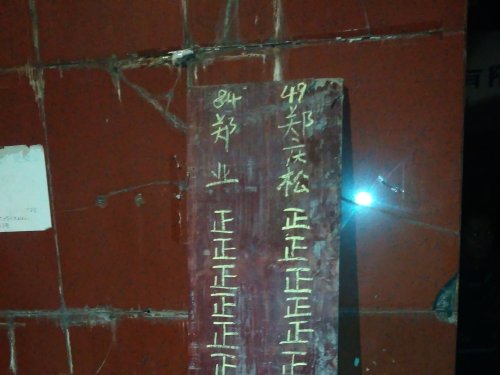 84郑业正正正正正正
49郑庆松正正正正正正